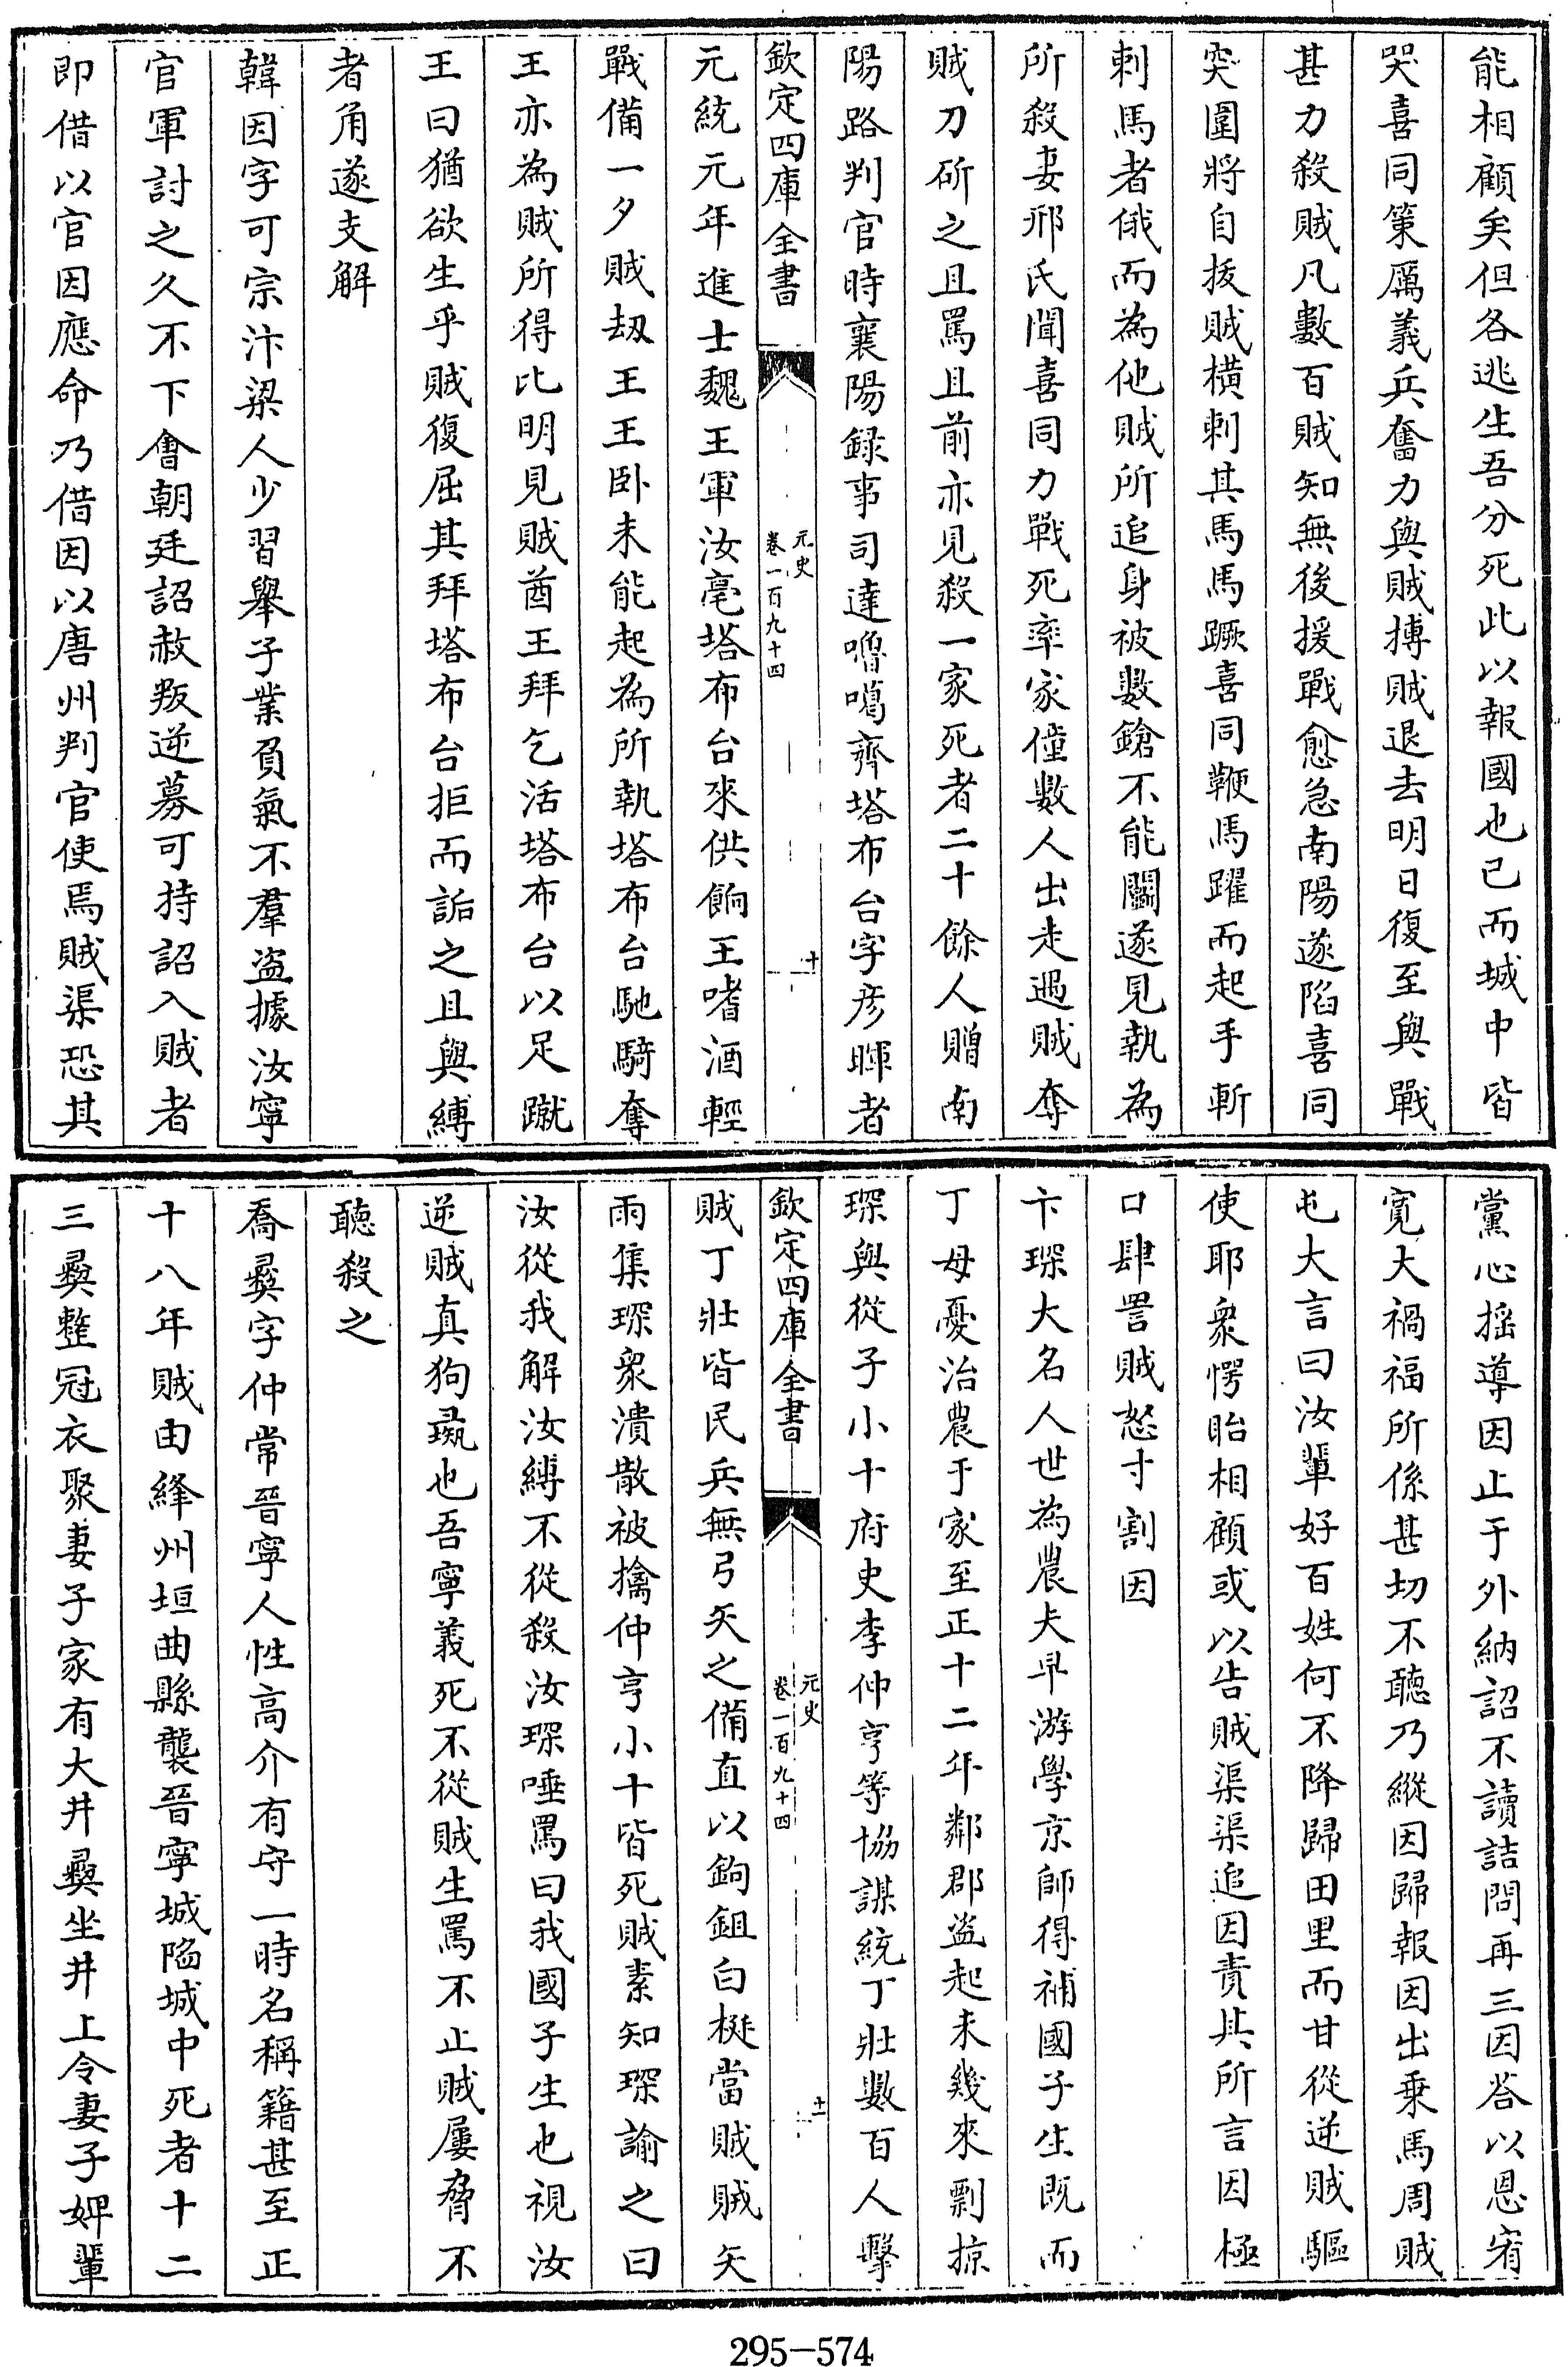 能相顧矣但各逃生吾分死此以報國也已而城中皆
哭喜同策厲義兵奮力與賊搏賊退去明日復至與戰
甚力殺賊凡數百賊知無後援戰愈急南陽遂陷喜同
突圍將自拔賊橫刺其馬馬蹶喜同鞭馬躍而起手斬
刺馬者俄而為他賊所追身被數鎗不能鬬遂見執為
所殺妻邢氏聞喜同力戰死率家僮數人出走遇賊奪
賊刀斫之且罵且前亦見殺一家死者二十餘人贈南
陽路判官時襄陽録事司達嚕噶齊塔布台字彦暉者
欽定四庫全書
元史
卷一百九十四
十
元統元年進士魏王軍汝亳塔布台來供餉王嗜酒輕
戰備一夕賊刼王王卧未能起為所執塔布台馳騎奪
王亦為賊所得比明見賊酋王拜乞活塔布台以足蹴
王曰猶欲生乎賊復屈其拜塔布台拒而詬之且與縛
者角遂支解
韓因字可宗汴梁人少習舉子業負氣不羣盗據汝寧
官軍討之久不下㑹朝廷詔赦叛逆募可持詔入賊者
即借以官因應命乃借因以唐州判官使焉賊渠恐其
黨心揺導因止于外納詔不讀詰問再三因荅以恩宥
寛大禍福所係甚切不聽乃縱因歸報因出乗馬周賊
屯大言曰汝輩好百姓何不降歸田里而甘從逆賊驅
使耶衆愕眙相顧或以告賊渠渠追因責其所言因極
口肆詈賊怒寸割因
卞琛大名人世為農夫早游學京師得補國子生既而
丁母憂治農于家至正十二年鄰郡盗起未幾來剽掠
琛與從子小十府史李仲亨等協謀統丁壯數百人擊
欽定四庫全書
元史
卷一百九十四
十一
賊丁壯皆民兵無弓矢之備直以鉤鉏白梃當賊賊矢
雨集琛衆潰散被擒仲亨小十皆死賊素知琛諭之曰
汝從我解汝縛不從殺汝琛唾罵曰我國子生也視汝
逆賊真狗彘也吾寧義死不從賊生罵不止賊屢脅不
聽殺之
喬彞字仲常晉寧人性高介有守一時名稱籍甚至正
十八年賊由絳州垣曲縣襲晉寧城陷城中死者十二
三彞整冠衣聚妻子家有大井彞坐井上令妻子婢輩
295-574